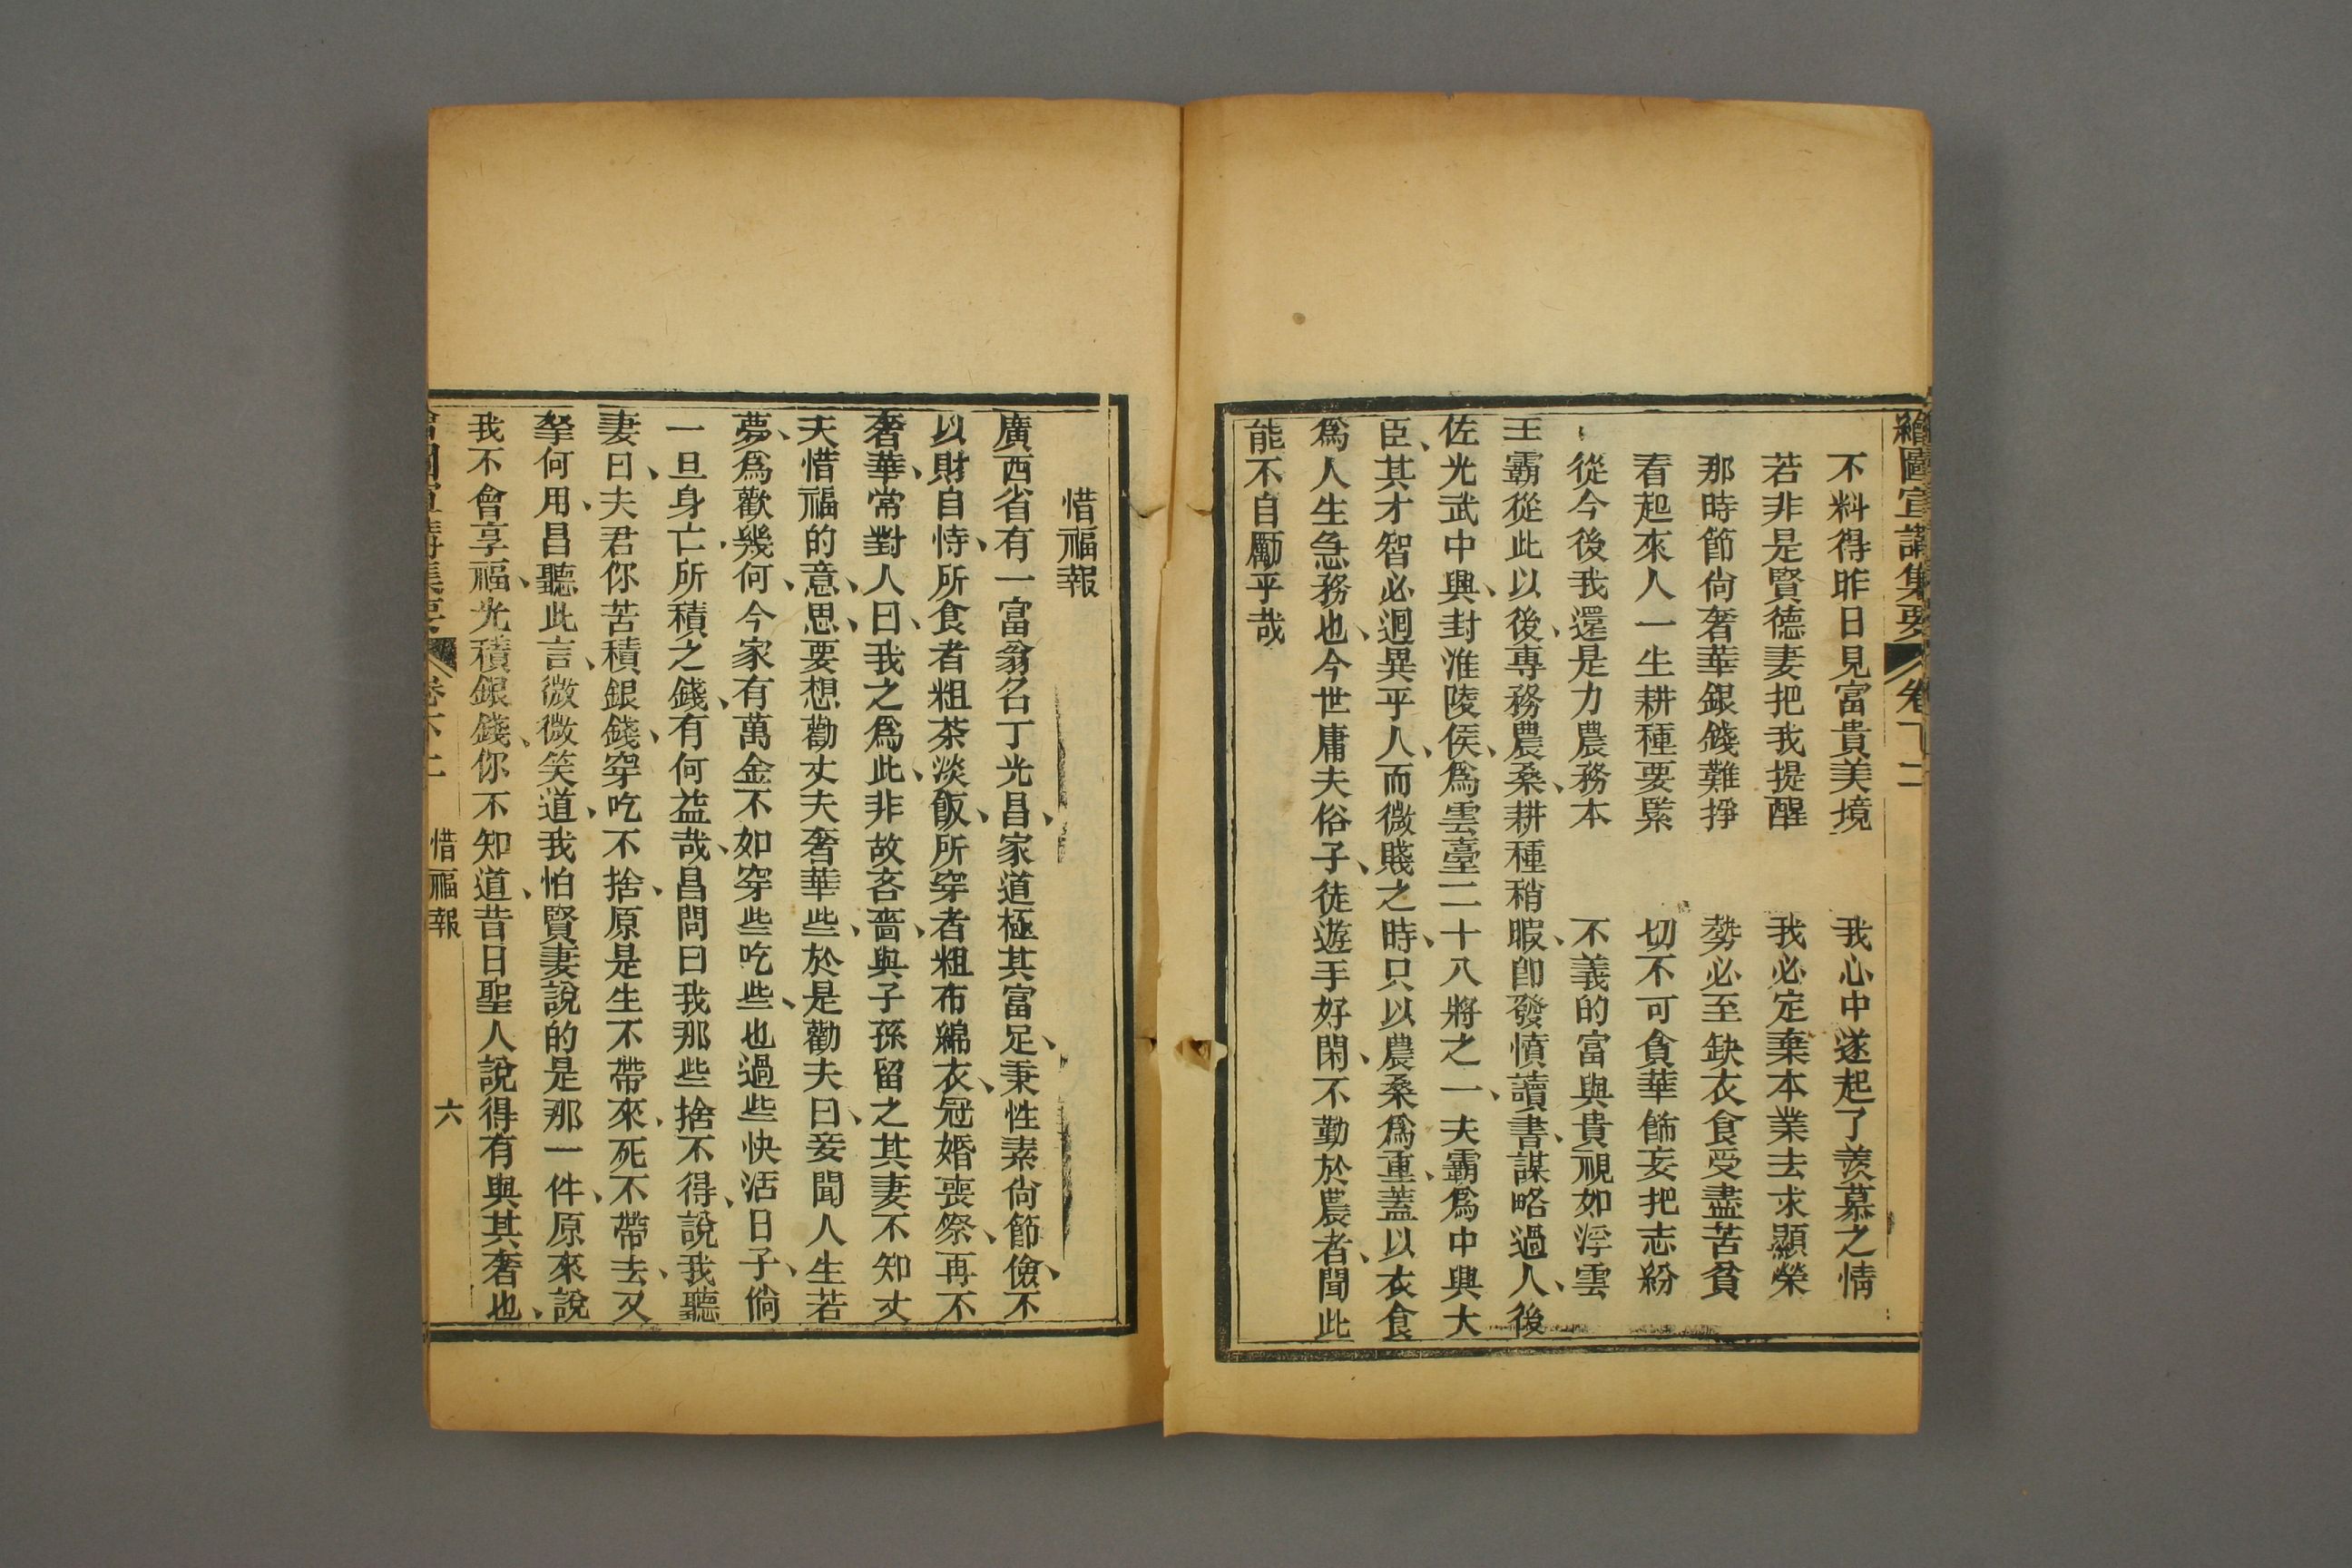 繪圖宣講集要 卷下二
不料得昨日見富貴美境 我心中遂起了羨慕之情
若非是賢德妻把我提醒 我必定棄本業去求顯榮
那時節尙奢華銀錢難掙 勢必至缺衣食受盡苦貧
看起來人一生耕種要緊 切不可貪華飾妄把志紛
從今後我還是力農務本 不義的富與貴視如浮雲
王霸從此以後、專務農桑、耕種稍暇、卽發憤讀書、謀略過人、後
佐光武中興、封淮陵侯、爲雲臺二十八將之一、夫霸爲中興大
臣、其才智必迥異乎人、而微賤之時、只以農桑爲重、蓋以衣食
爲人生急務也、今世庸夫俗子、徒遊手好閑、不勤於農者、聞此
能不自勵乎哉
惜福報
廣西省有一富翁名丁光昌、家道極其富足、秉性素尙節儉、不
以財自恃、所食者粗茶淡飯、所穿者粗布綿衣、冠婚喪祭、再不
奢華、常對人曰、我之爲此、非故吝嗇、與子孫留之其妻不知丈
夫惜福的意、思、要想勸丈夫奢華些、於是勸夫曰、妾聞人生若
夢、爲歡幾何、今家有萬金不如穿些吃些、也過些快活日子、倘
一旦身亡、所積之錢、有何益哉、昌問曰我那些捨不得、說我聽
妻曰、夫君你苦積銀錢、穿吃不捨、原是生不帶來、死不帶去、又
拏何用、昌聽此言、微微笑道、我怕賢妻說的是那一件、原來說
我不會享福、光積銀錢、你不知道、昔日聖人說得有與其奢也、
繪圖宣講集要 卷下二 惜福報 六